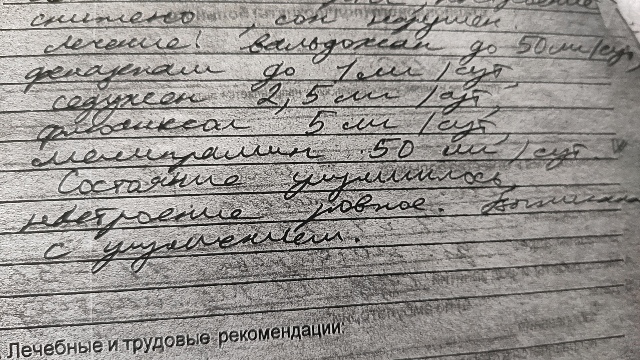 снижено, сон нарушен.
Лечение: вальдоксан до 50 мг/сут,
феназепам до 1 мг/сут,
седуксен 2,5 мг/сут,
флюанксол 5 мг/сут,
мелипрамин 50 мг/сут.
Состояние улучшилось,
настроение ровное.
с улучшением.
Лечебные и трудовые рекомендации: